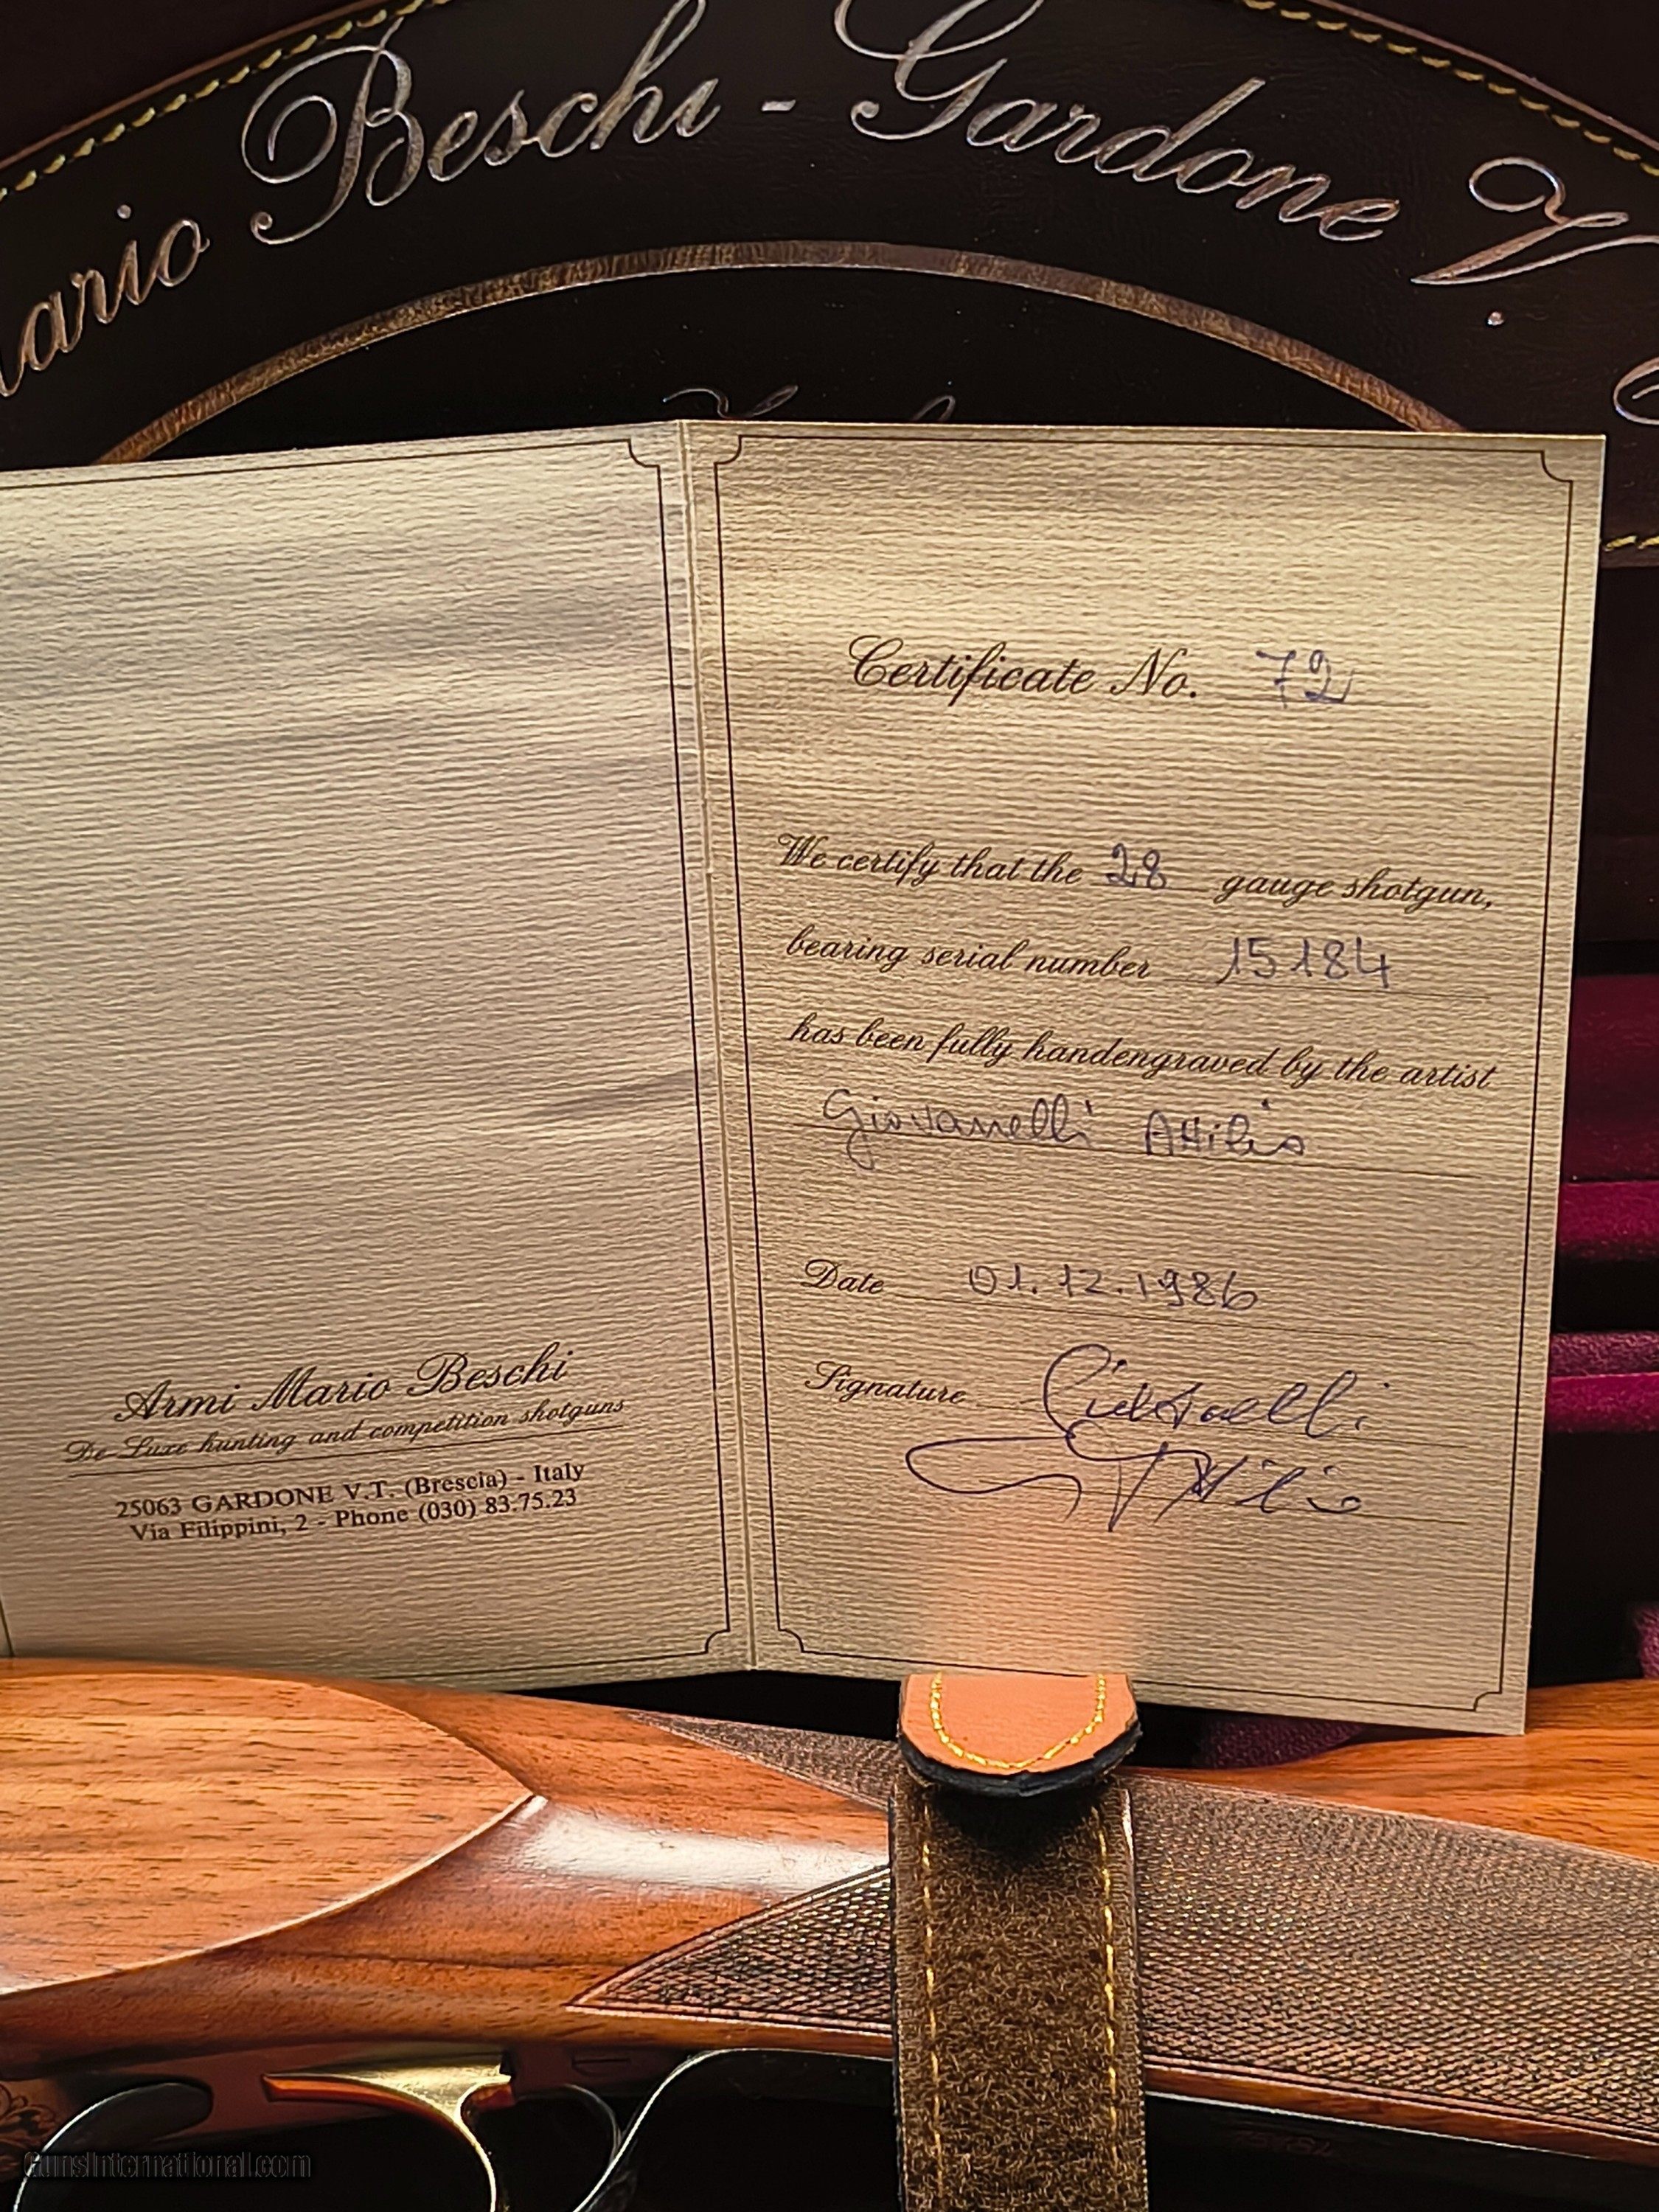 Mario Beschi - Gardone V.
Armi Mario Beschi
De-Luxe hunting and competition shotguns
25063 GARDONE V.T. (Brescia) - Italy
Via Filippini, 2 - Phone (030) 83.75.23
Certificate No. 72
We certify that the 28 gauge shotgun,
bearing serial number 15184
has been fully handengraved by the artist
Giovanelli Attilio
Date 01.12.1986
Signature Giovanelli
Attilio
GunsInternational.com